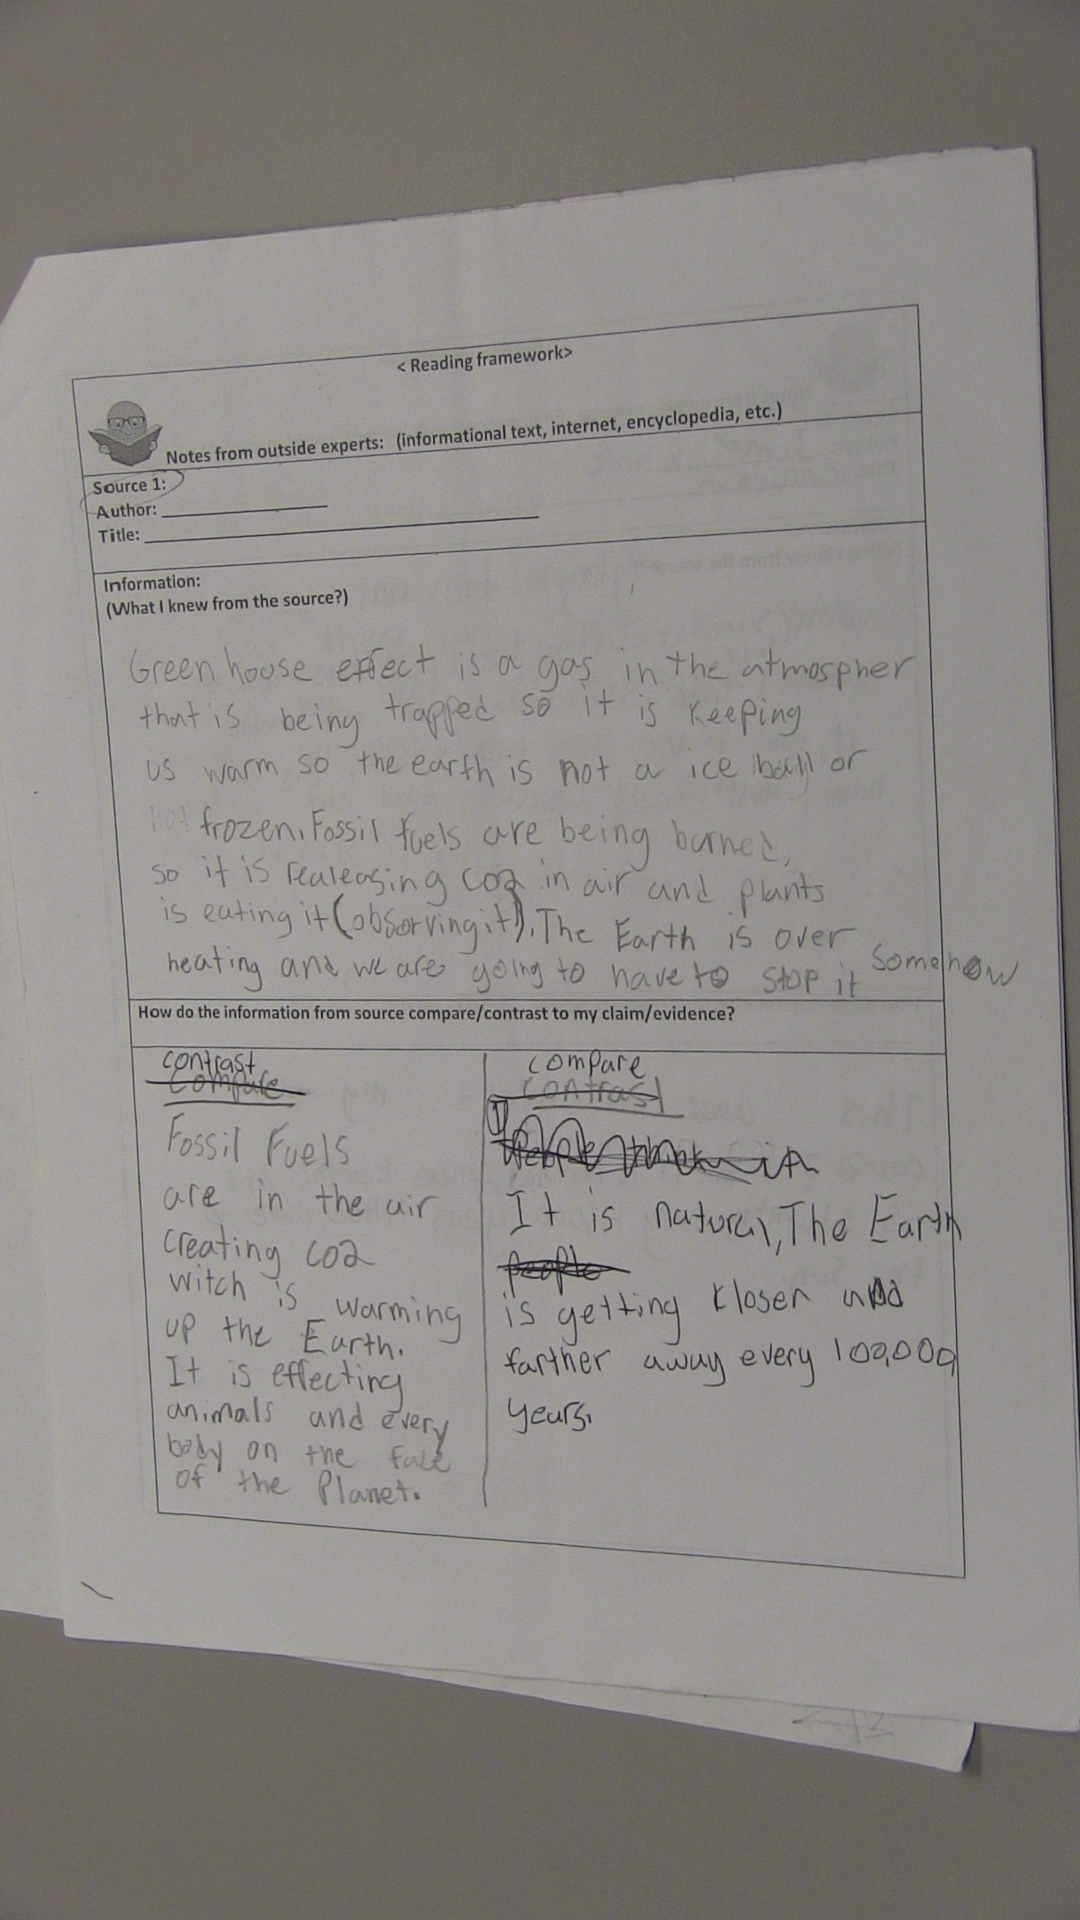 < Reading framework>
Notes from outside experts: (informational text, internet, encyclopedia, etc.)
Source 1:
Author:
Title:
Information:
(What I knew from the source?)
Green house effect is a gas in the atmospher
that is being trapped so it is keeping
us warm so the earth is not a ice ball or
not frozen. Fossil fuels are being burned,
so it is realeasing co2 in air and plants
is eating it (obsorving it). The Earth is over
heating and we are going to have to stop it somehow
How do the information from source compare/contrast to my claim/evidence?
contrast
Compare
Fossil Fuels
are in the air
creating co2
witch is warming
up the Earth.
It is effecting
animals and every
body on the face
of the Planet.
compare
contrast
It is natural, The Earth
people
is getting kloser and
farther away every 100,000
years.